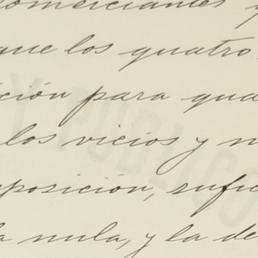 omerciantes y
que los quatro
ición para que
los vicios y n
Y PUBLICO
posición, sufic
a nula, y la de